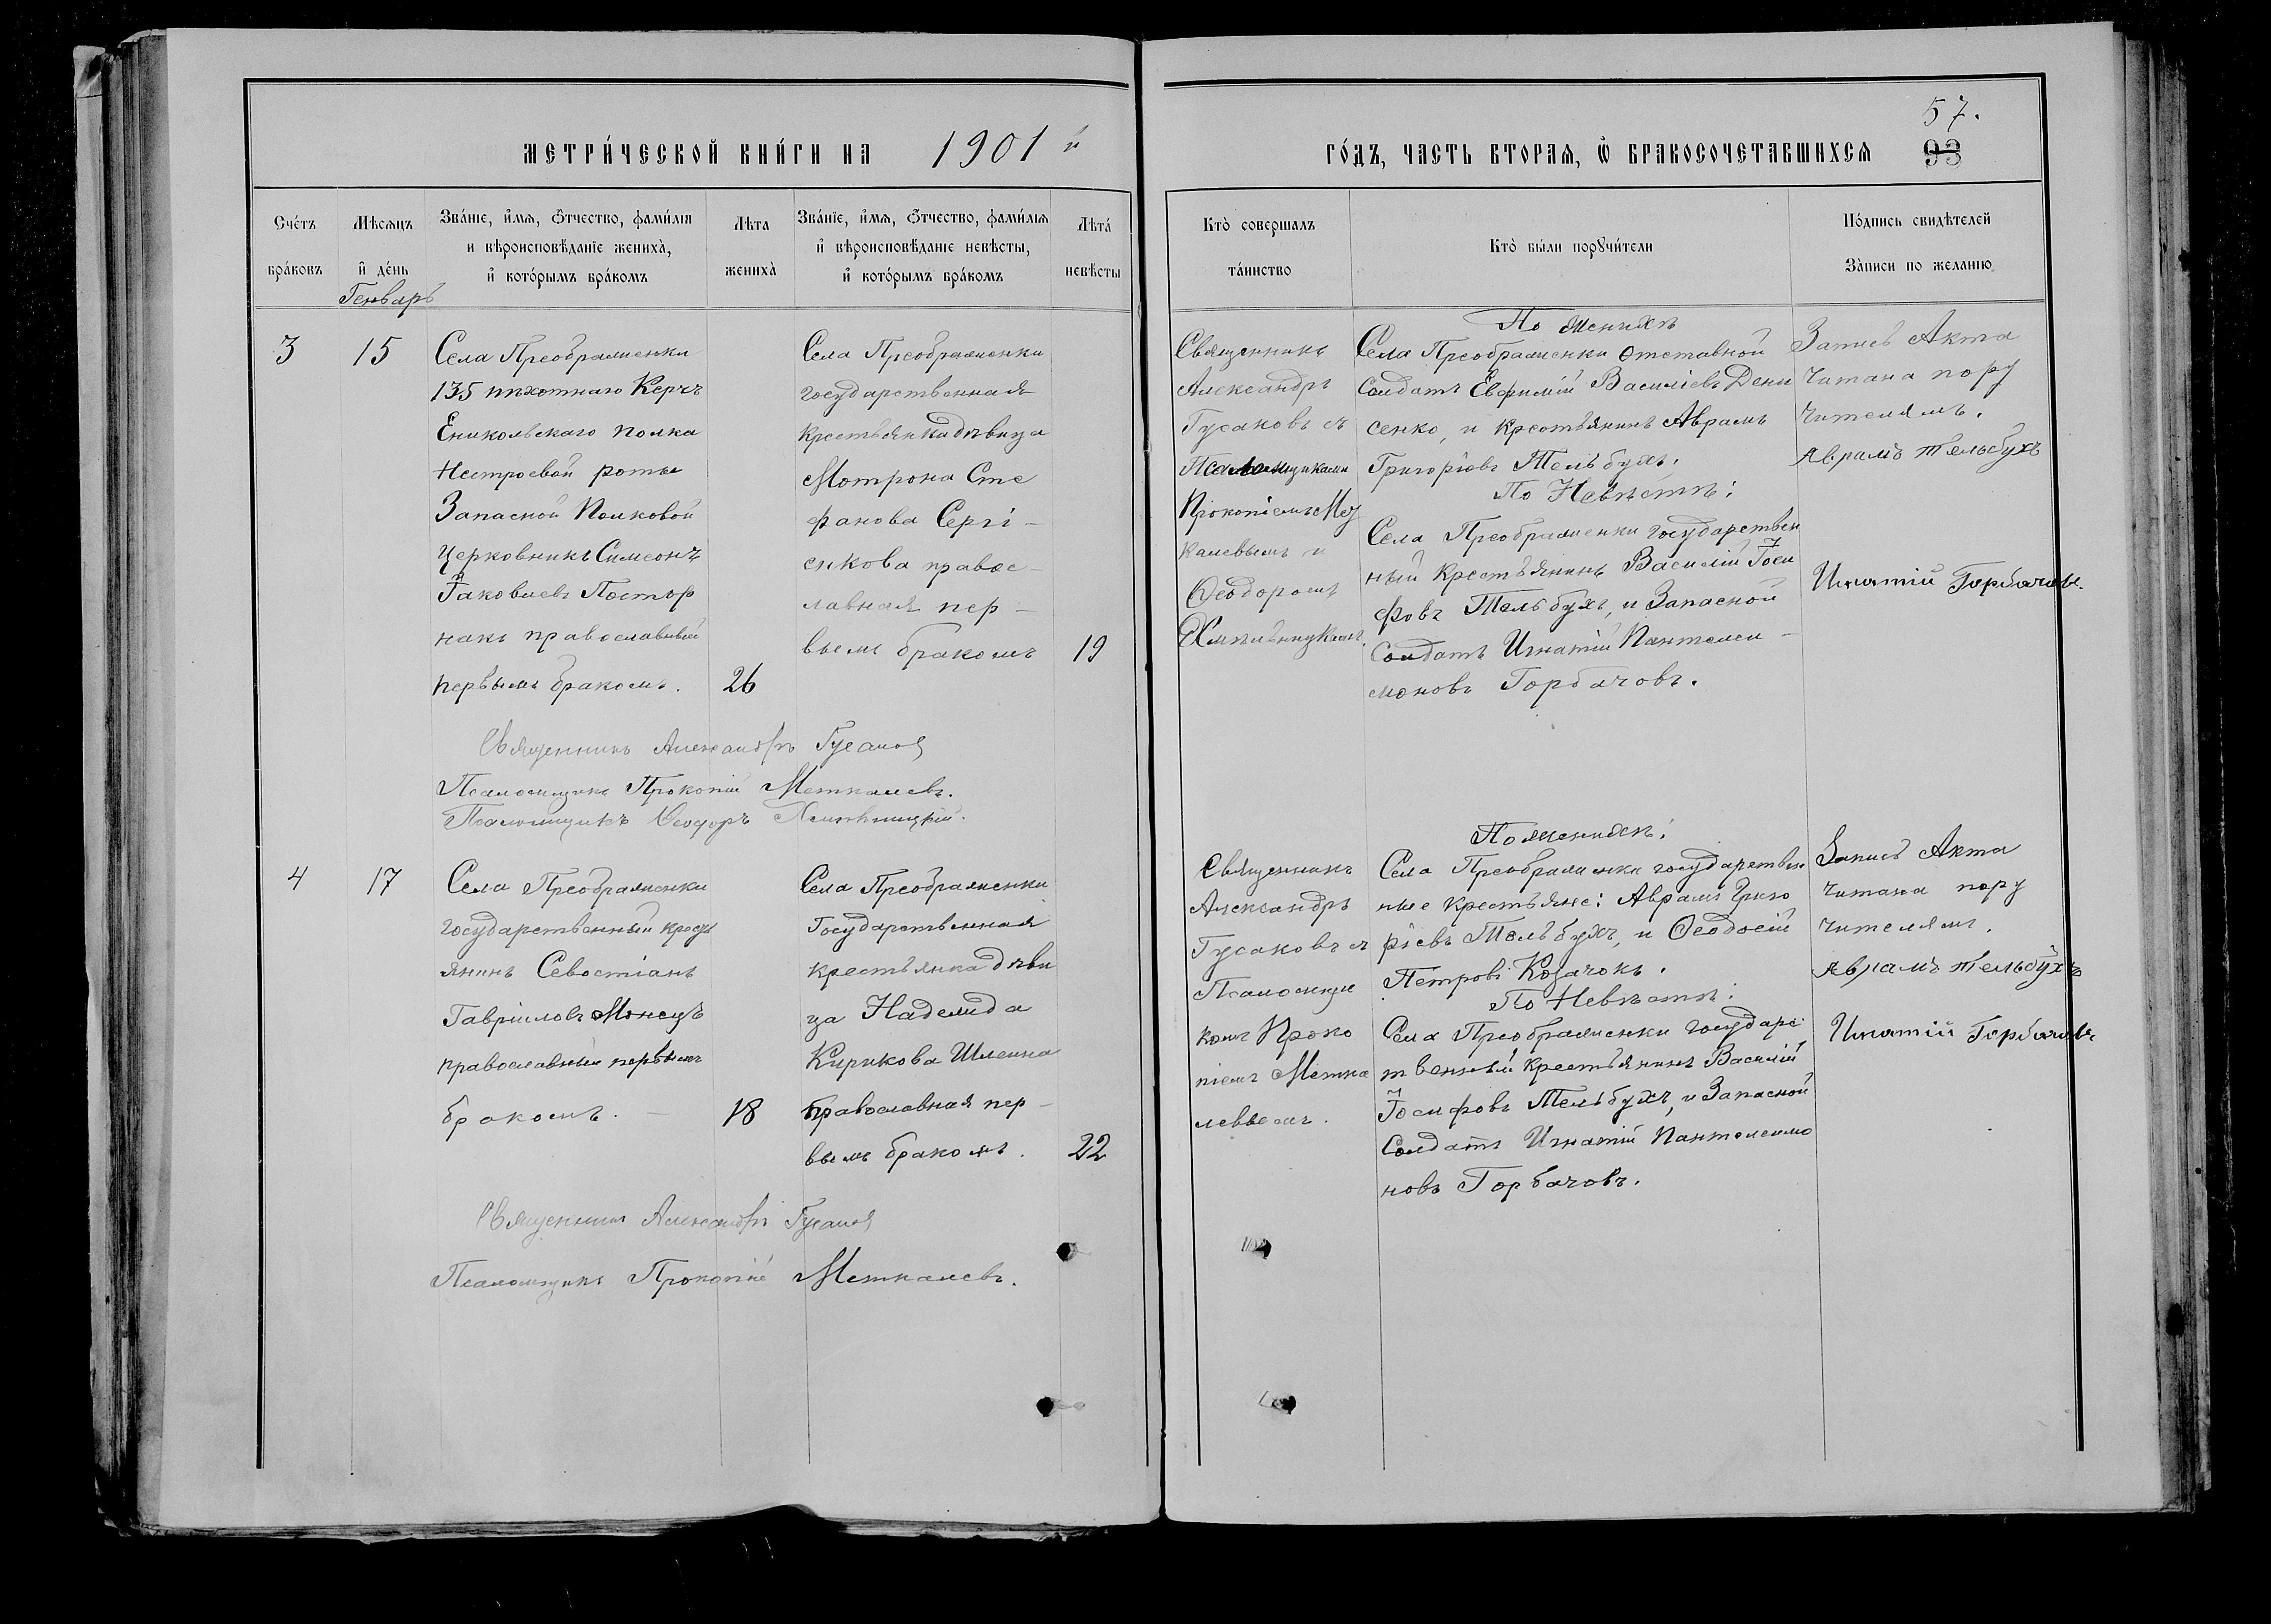 57.
МЕТРИ́ЧЕСКОЙ КНИ́ГИ НА 1901 й
ГО́ДЪ, ЧАСТЬ ВТОРАѦ, Ѽ БРАКОСОЧЕТАВШИХСѦ 93
Сче́тъ бра́ковъ
Мѣсѧцъ и҆ де́нь
Генварь
Зва́нїе, и҆мѧ, ѻ҆тчество, фами́лїѧ и вѣроисповѣданїе жениха̀, и҆ кото́рымъ бра́комъ
Лѣта жениха̀
Зва́нїе, и҆мѧ, ѻ҆тчество, фами́лїѧ и҆ вѣроисповѣданїе невѣсты, и҆ кото́рымъ бра́комъ
Лѣта́ невѣсты
Кто̀ совершалъ та́инство
Кто̀ бы́ли порꙋчи́тели
По́дпись свидѣтелей За̀писи по желанїю
3
15
Села Преображенки
135 пѣхотнаго Керчъ
Еникольскаго полка
Нестроевой роты
Запасной Полковой
Церковникъ Симеонъ
Іаковлевъ Постор
накъ православный
первымъ бракомъ.
26
Села Преображенки
государственная
крестьянка дѣвица
Мотрона Сте
фанова Сергі-
енкова правос-
лавная пер-
вымъ бракомъ
19
Священникъ
Александръ
Гусаковъ съ
Псаломщиками
Прокопіемъ
калевымъ и
Ѳеодоромъ
По женихѣ
Села Преображенки отставной
солдатъ Евфимій Василіевъ Дени
сенко, и крестьянинъ Аврамъ
Григоріевъ Тельбухъ.
По Невѣстѣ:
Села Преображенки государствен
ный крестьянинъ Василій Іоси
фовъ Тельбухъ, и Запасной
Солдатъ Игнатій Пантелеи-
моновъ Горбачовъ.
Запись Акта
читана пору
чителямъ.
Аврамъ Тельбухъ
Игнатій Горбачовъ.
Священникъ Александръ Гусаковъ
Псаломщикъ Прокопій Меткалевъ.
Псаломщикъ Ѳеодоръ
4
17
Села Преображенки
государственный крестъ
янинъ Севостіанъ
Гавріиловъ
православный первымъ
бракомъ. —
18
Села Преображенки
Государственная
крестьянка дѣви
ца Надежда
Кирикова Шлеина
православная пер-
вымъ бракомъ.
22
Священникъ
Александръ
Гусаковъ съ
Псаломщи
комъ Проко
піемъ Метка
левымъ.
По женихѣ:
Села Преображенки государствен
ные крестьяне: Аврамъ Григо
ріевъ Тельбухъ, и Ѳеодосій
Петровъ Козачокъ.
По Невѣстѣ:
Села Преображенки государс
твенный крестьянинъ Василій
Іосифовъ Тельбухъ, и Запасной
Солдатъ Игнатій Пантелеимо
новъ Горбачовъ.
Запись Акта
читана пору
чителямъ.
Аврамъ Тельбухъ
Игнатій Горбачовъ
Священникъ Александръ Гусаковъ
Псаломщикъ Прокопій Меткалевъ.